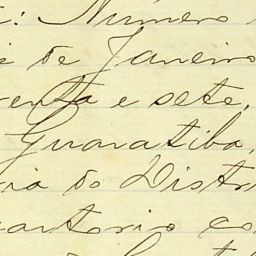 : Numero
de Janeiro
renta e sete,
Guaratiba,
ria do Distri
cartorio co